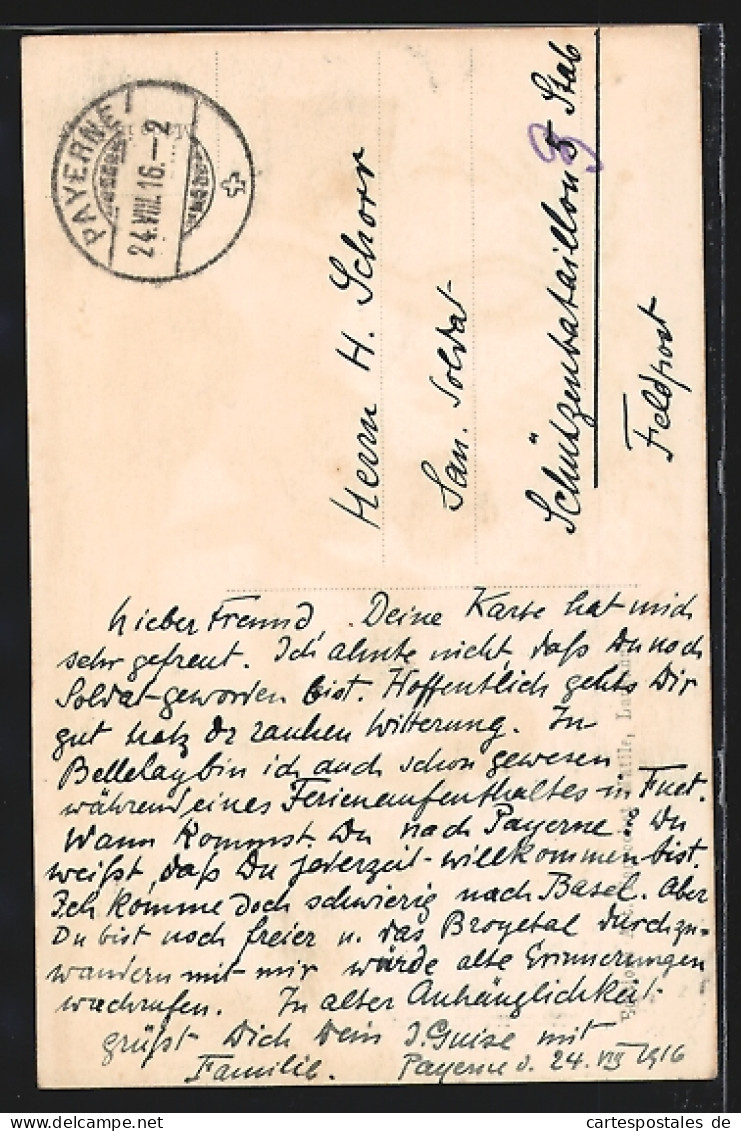 PAYERNE
24.VIII.16.–2
Herrn H. Schorr
San. Soldat
Schützenbataillon 5 Stab
Feldpost
Lieber Freund. Deine Karte hat mich
sehr gefreut. Ich ahnte nicht, daß Du noch
Soldat geworden bist. Hoffentlich gehts Dir
gut trotz der rauhen Witterung. In
Bellelay bin ich auch schon gewesen
während eines Ferienaufenthaltes in Fuet.
Wann kommst Du nach Payerne. Du
weißt, daß Du jederzeit willkommen bist.
Ich komme doch schwierig nach Basel. Aber
Du bist noch freier u. das Broyetal durchzu=
wandern mit mir würde alte Erinnerungen
wachrufen. In alter Anhänglichkeit
grüßt Dich Dein J. Guise mit
Familie. Payerne d. 24. VIII 1916
cartespostales.de